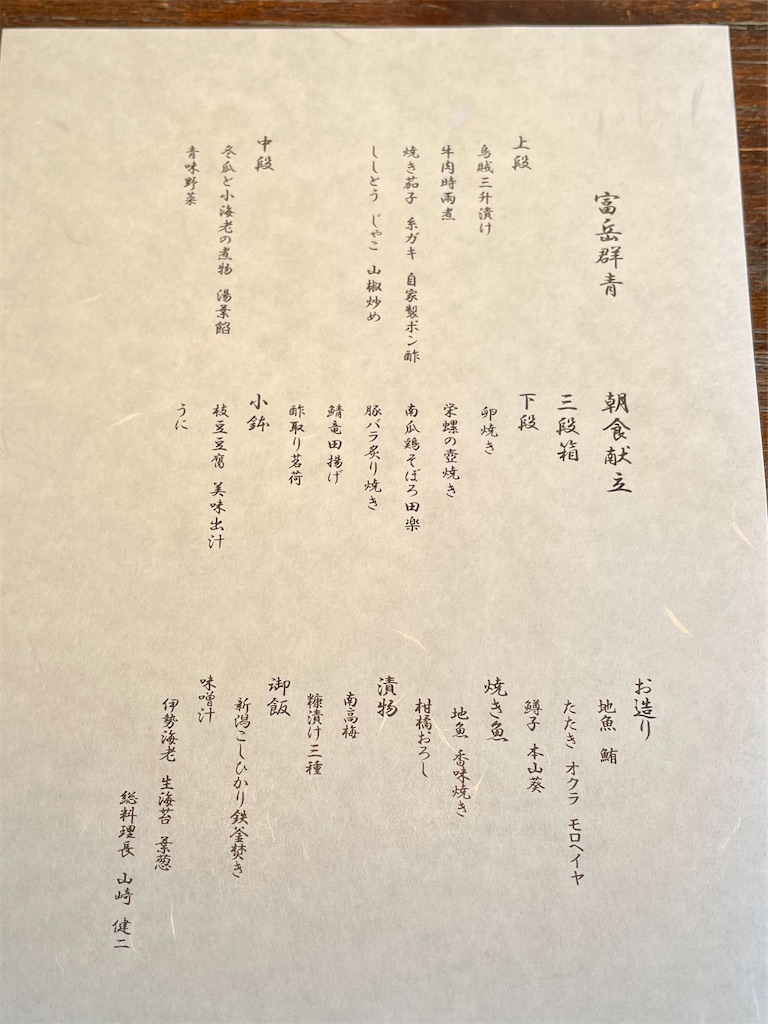 富岳群青
朝食献立
三段箱
上段
烏賊三升漬け
牛肉時雨煮
焼き茄子 糸ガキ 自家製ポン酢
ししとう じゃこ 山椒炒め
中段
冬瓜と小海老の煮物 湯葉餡
青味野菜
下段
卵焼き
栄螺の壺焼き
南瓜鶏そぼろ田楽
豚バラ炙り焼き
鯖竜田揚げ
酢取り茗荷
小鉢
枝豆豆腐 美味出汁
うに
お造り
地魚 鮪
たたき オクラ モロヘイヤ
鱒子 本山葵
焼き魚
地魚 香味焼き
柑橘おろし
漬物
南高梅
糠漬け三種
御飯
新潟こしひかり鉄釜焚き
味噌汁
伊勢海老 生海苔 葉葱
総料理長 山崎 健二